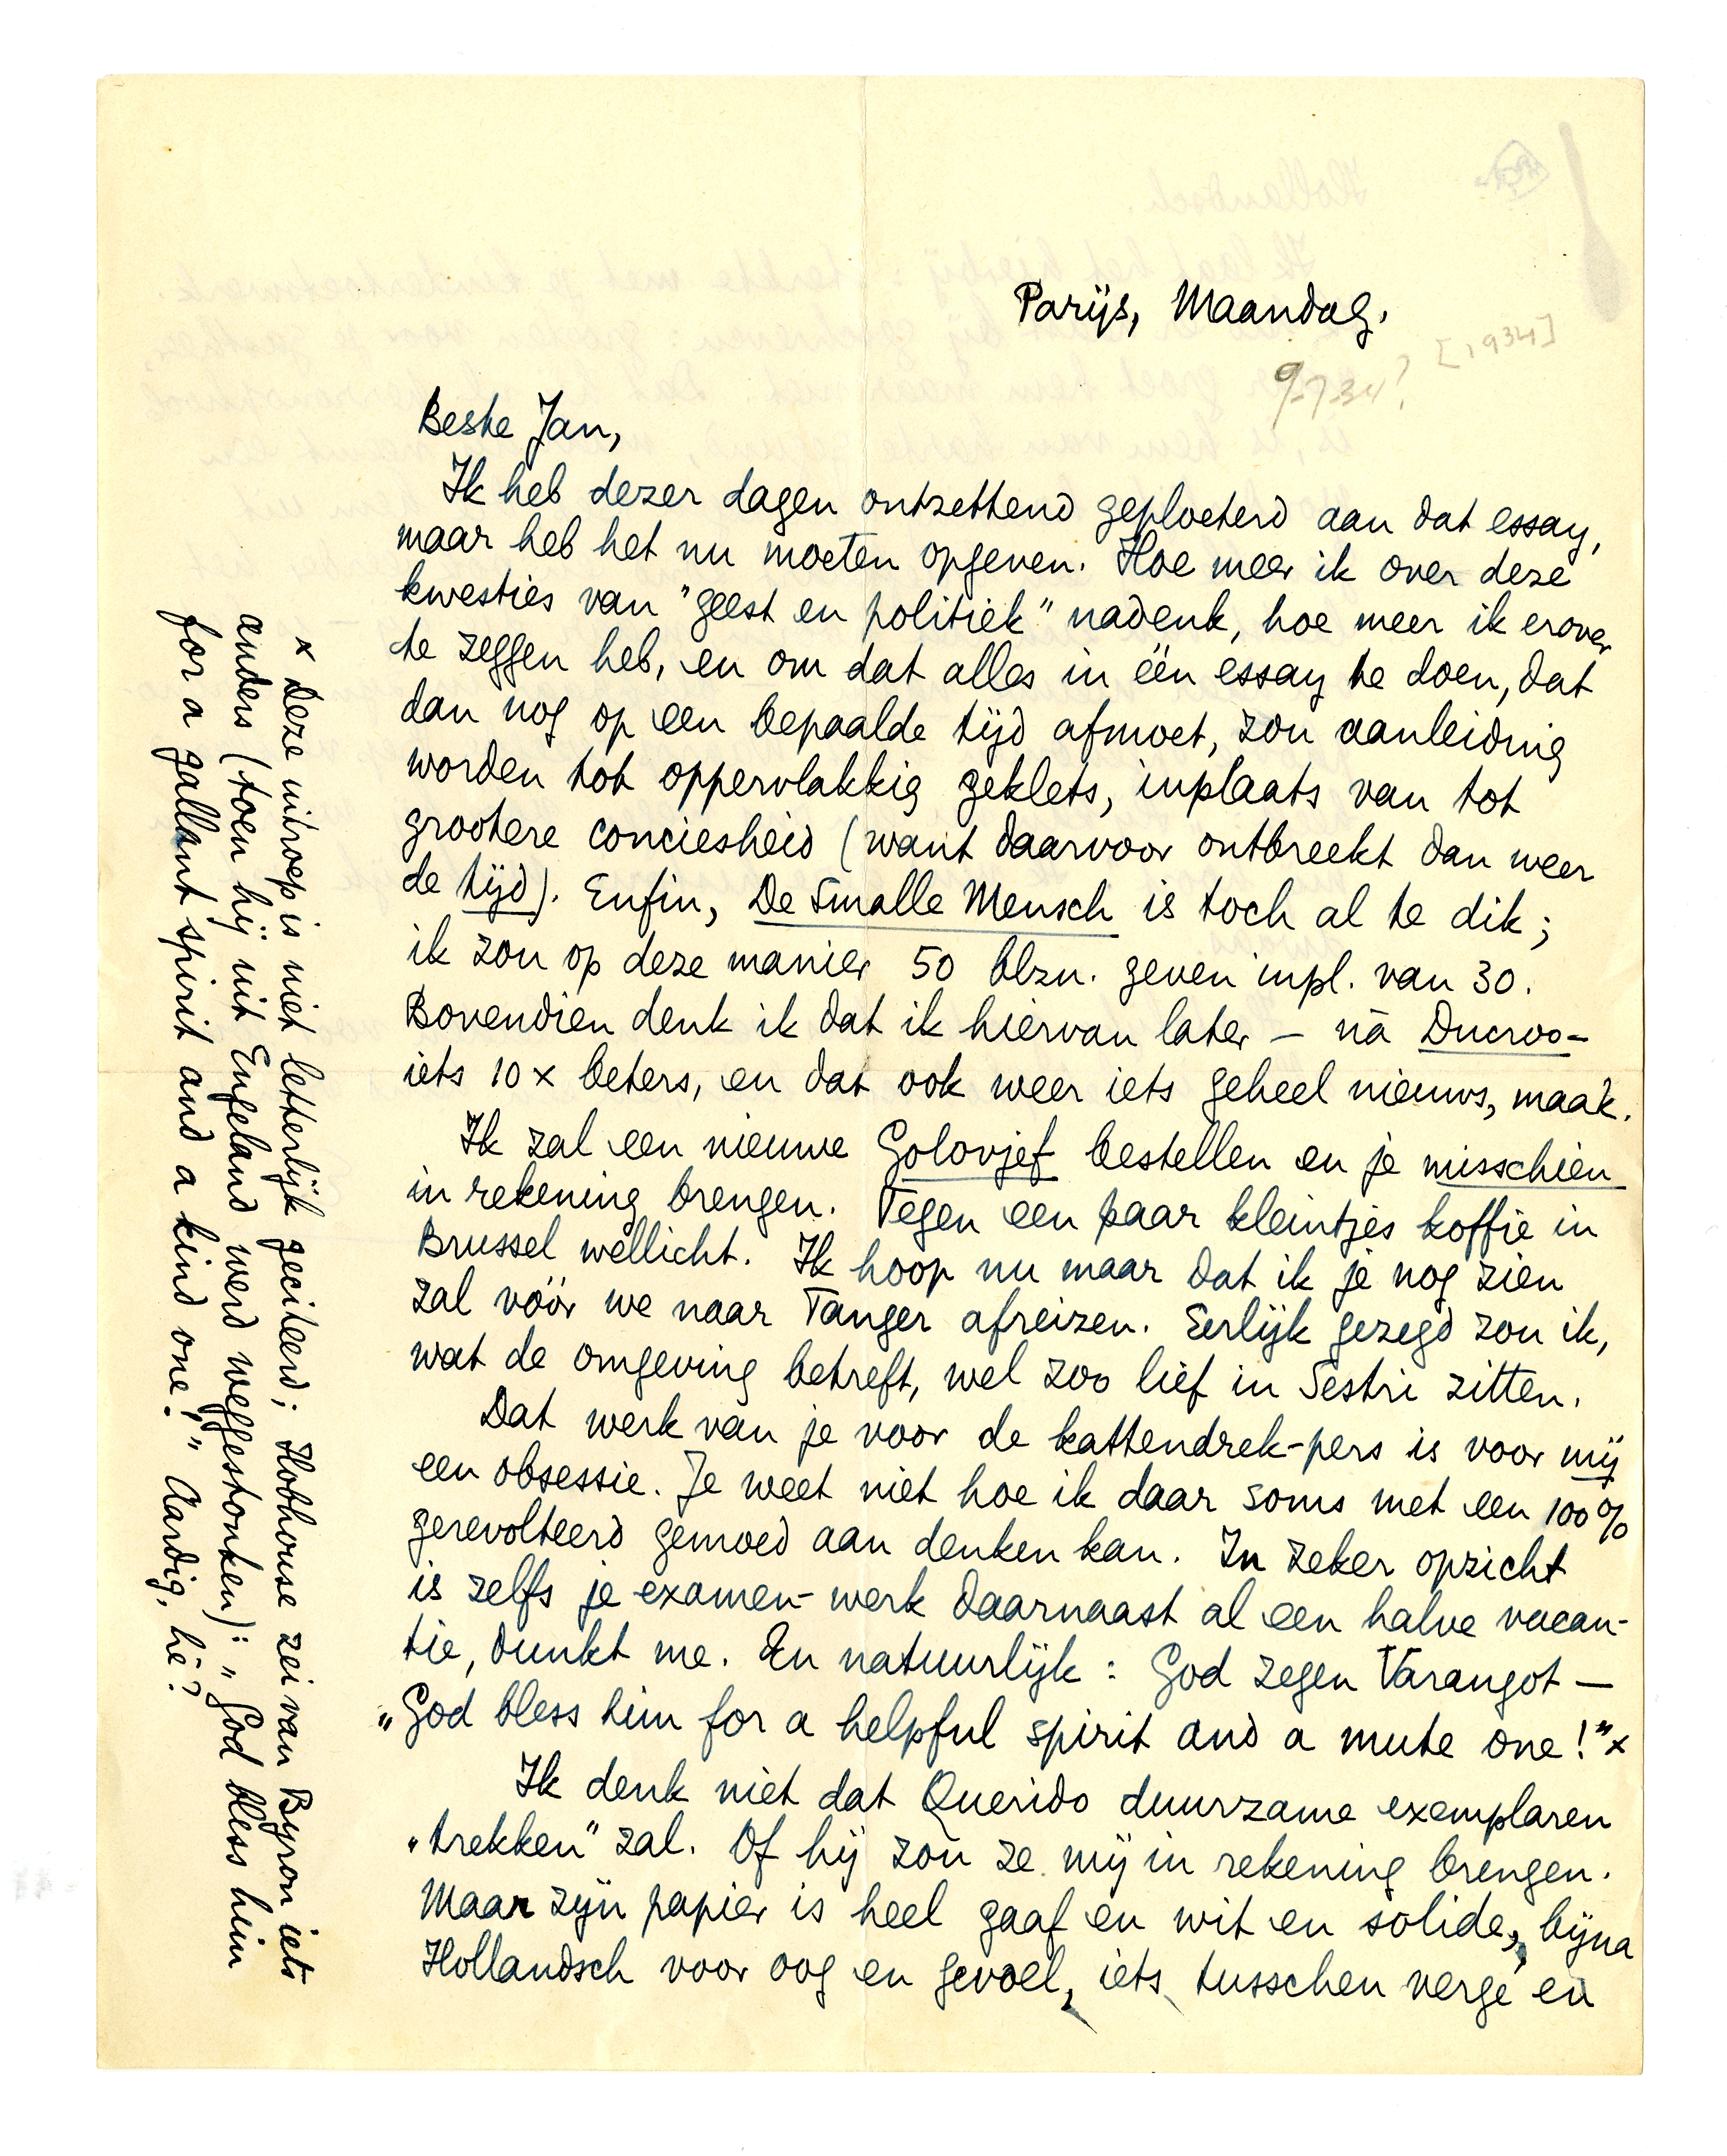 Parijs, Maandag.
9-7-34? [1934]
Beste Jan,
Ik heb dezer dagen ontzettend geploeterd aan dat essay,
maar heb het nu moeten opgeven. Hoe meer ik over deze
kwesties van "geest en politiek" nadenk, hoe meer ik erover
te zeggen heb, en om dat alles in één essay te doen, dat
dan nog op een bepaalde tijd afmoet, zou aanleiding
worden tot oppervlakkig geklets, inplaats van tot
grootere conciesheid (want daarvoor ontbreekt dan weer
de tijd). Enfin, De Smalle Mensch is toch al te dik;
ik zou op deze manier 50 blzn. geven inpl. van 30.
Bovendien denk ik dat ik hiervan later – ná Ducroo –
iets 10 x beters, en dat ook weer iets geheel nieuws, maak.
Ik zal een nieuwe Golovjef bestellen en je misschien
in rekening brengen. Tegen een paar kleintjes koffie in
Brussel wellicht. Ik hoop nu maar dat ik je nog zien
zal vóór we naar Tanger afreizen. Eerlijk gezegd zou ik,
wat de omgeving betreft, wel zoo lief in Sestri zitten.
Dat werk van je voor de kattendrek-pers is voor mij
een obsessie. Je weet niet hoe ik daar soms met een 100%
gerevolteerd gemoed aan denken kan. In zeker opzicht
is zelfs je examen-werk daarnaast al een halve vacan-
tie, dunkt me. En natuurlijk: God zegen Varangot –
„God bless him for a helpful spirit and a mute one!" x
Ik denk niet dat Querido duurzame exemplaren
„trekken" zal. Of hij zou ze mij in rekening brengen.
Maar zijn papier is heel gaaf en wit en solide, bijna
Hollandsch voor oog en gevoel, iets tusschen vergé en
x Deze uitroep is niet letterlijk geciteerd; Hobhouse zei van Byron iets
anders (toen hij uit Engeland werd weggestonken): „God bless him
for a gallant spirit and a kind one!" Aardig, hè?